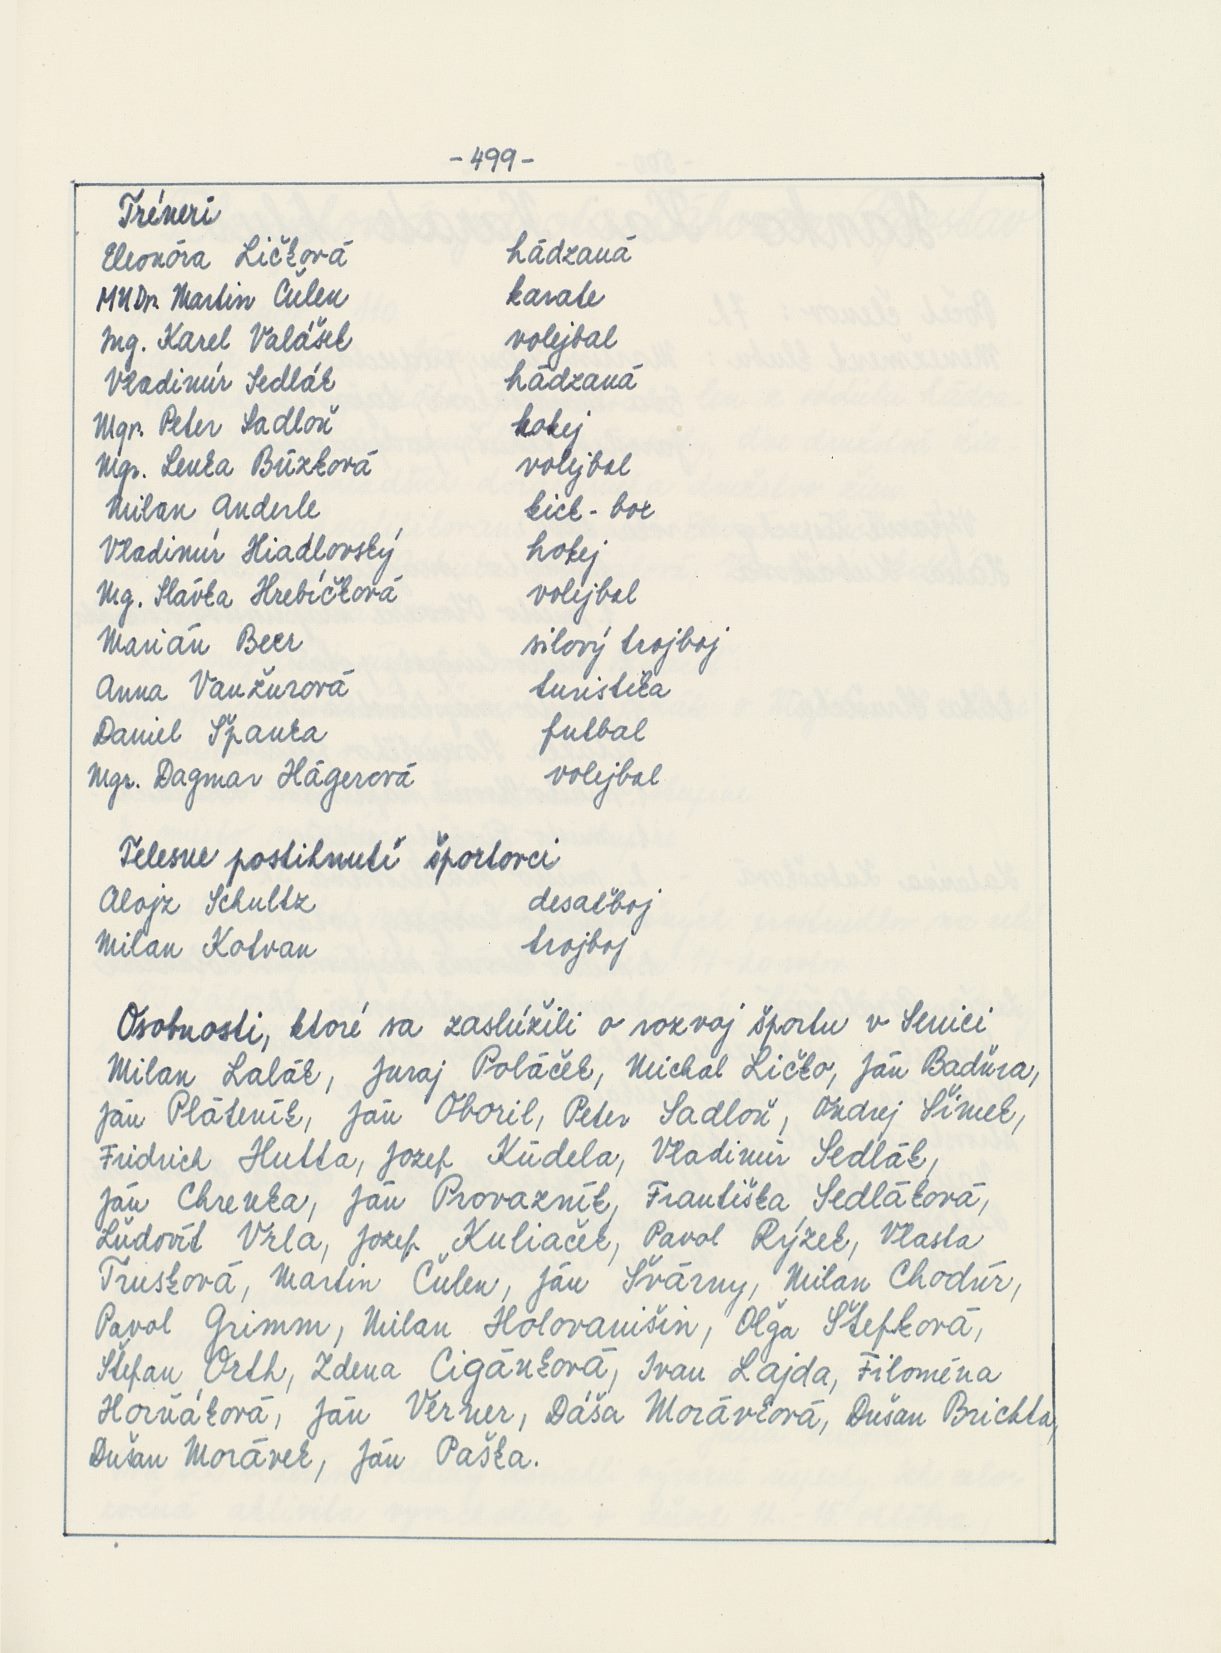 -499-
Tréneri
Eleonóra Ličková hádzaná
MUDr. Martin Čulen karate
Ing. Karel Valášek volejbal
Vladimír Sedlák hádzaná
Mgr. Peter Sadloň hokej
Mgr. Lenka Búzková volejbal
Milan Anderle kick-box
Vladimír Hiadlovský hokej
Ing. Slávka Hrebíčková volejbal
Marián Beer silový trojboj
Anna Vanžurová turistika
Daniel Španka futbal
Mgr. Dagmar Hágerová volejbal
Telesne postihnutí športovci
Alojz Schultz desaťboj
Milan Kotvan trojboj
Osobnosti, ktoré sa zaslúžili o rozvoj športu v Senici
Milan Lalák, Juraj Poláček, Michal Ličko, Ján Baďura,
Ján Pláteník, Ján Oboril, Peter Sadloň, Ondrej Šimek,
Fridrich Hutta, Jozef Kúdela, Vladimír Sedlák,
Ján Chrenka, Ján Provazník, Františka Sedláková,
Ľudovít Vrla, Jozef Kuliaček, Pavol Rýzek, Vlasta
Trusková, Martin Čulen, Ján Švárny, Milan Chodúr,
Pavol Grimm, Milan Holovanišin, Oľga Štefková,
Štefan Orth, Zdena Cigánková, Ivan Lajda, Filoména
Horňáková, Ján Verner, Dáša Morávková, Dušan Brichta,
Dušan Morávek, Ján Paška.